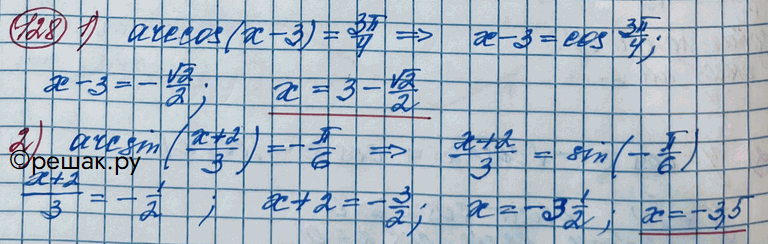 728 1) arccos(x-3) = 3π/4 => x-3 = cos 3π/4;
x-3 = -√2/2; x = 3 - √2/2
2) arcsin((x+2)/3) = -π/6 => (x+2)/3 = sin(-π/6)
©решак.ру
(x+2)/3 = -1/2; x+2 = -3/2; x = -3 1/2; x = -3,5